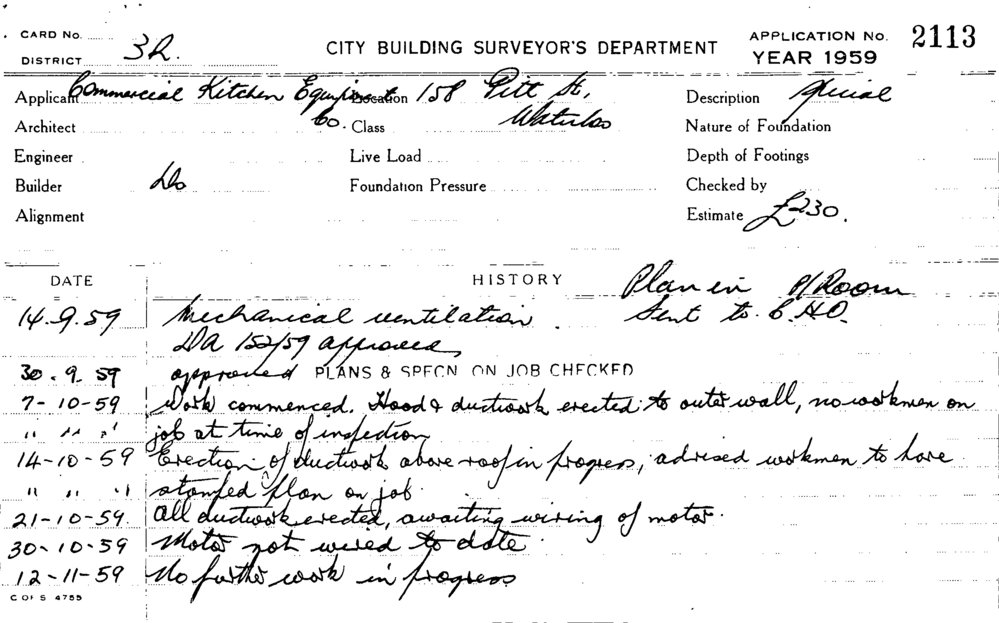 CARD No.
DISTRICT 3R.
CITY BUILDING SURVEYOR'S DEPARTMENT
APPLICATION No. 2113
YEAR 1959
Applicant Commercial Kitchen Equipment Co. Location 158 Pitt St, Waterloo Description Special
Architect Class Nature of Foundation
Engineer Live Load Depth of Footings
Builder Do Foundation Pressure Checked by
Alignment Estimate £230.
DATE HISTORY Plan in P/Room
14.9.59 Mechanical ventilation. Sent to C.H.O.
DA 152/59 approved
30.9.59 approved PLANS & SPECN ON JOB CHECKED
7-10-59 Work commenced. Hood & ductwork erected to outer wall, no workmen on
" " " job at time of inspection
14-10-59 Erection of ductwork above roof in progress, advised workmen to have
" " " stamped plan on job.
21-10-59. All ductwork erected, awaiting wiring of motor.
30-10-59 Motor not wired to date.
12-11-59 No further work in progress
C OF S 4755